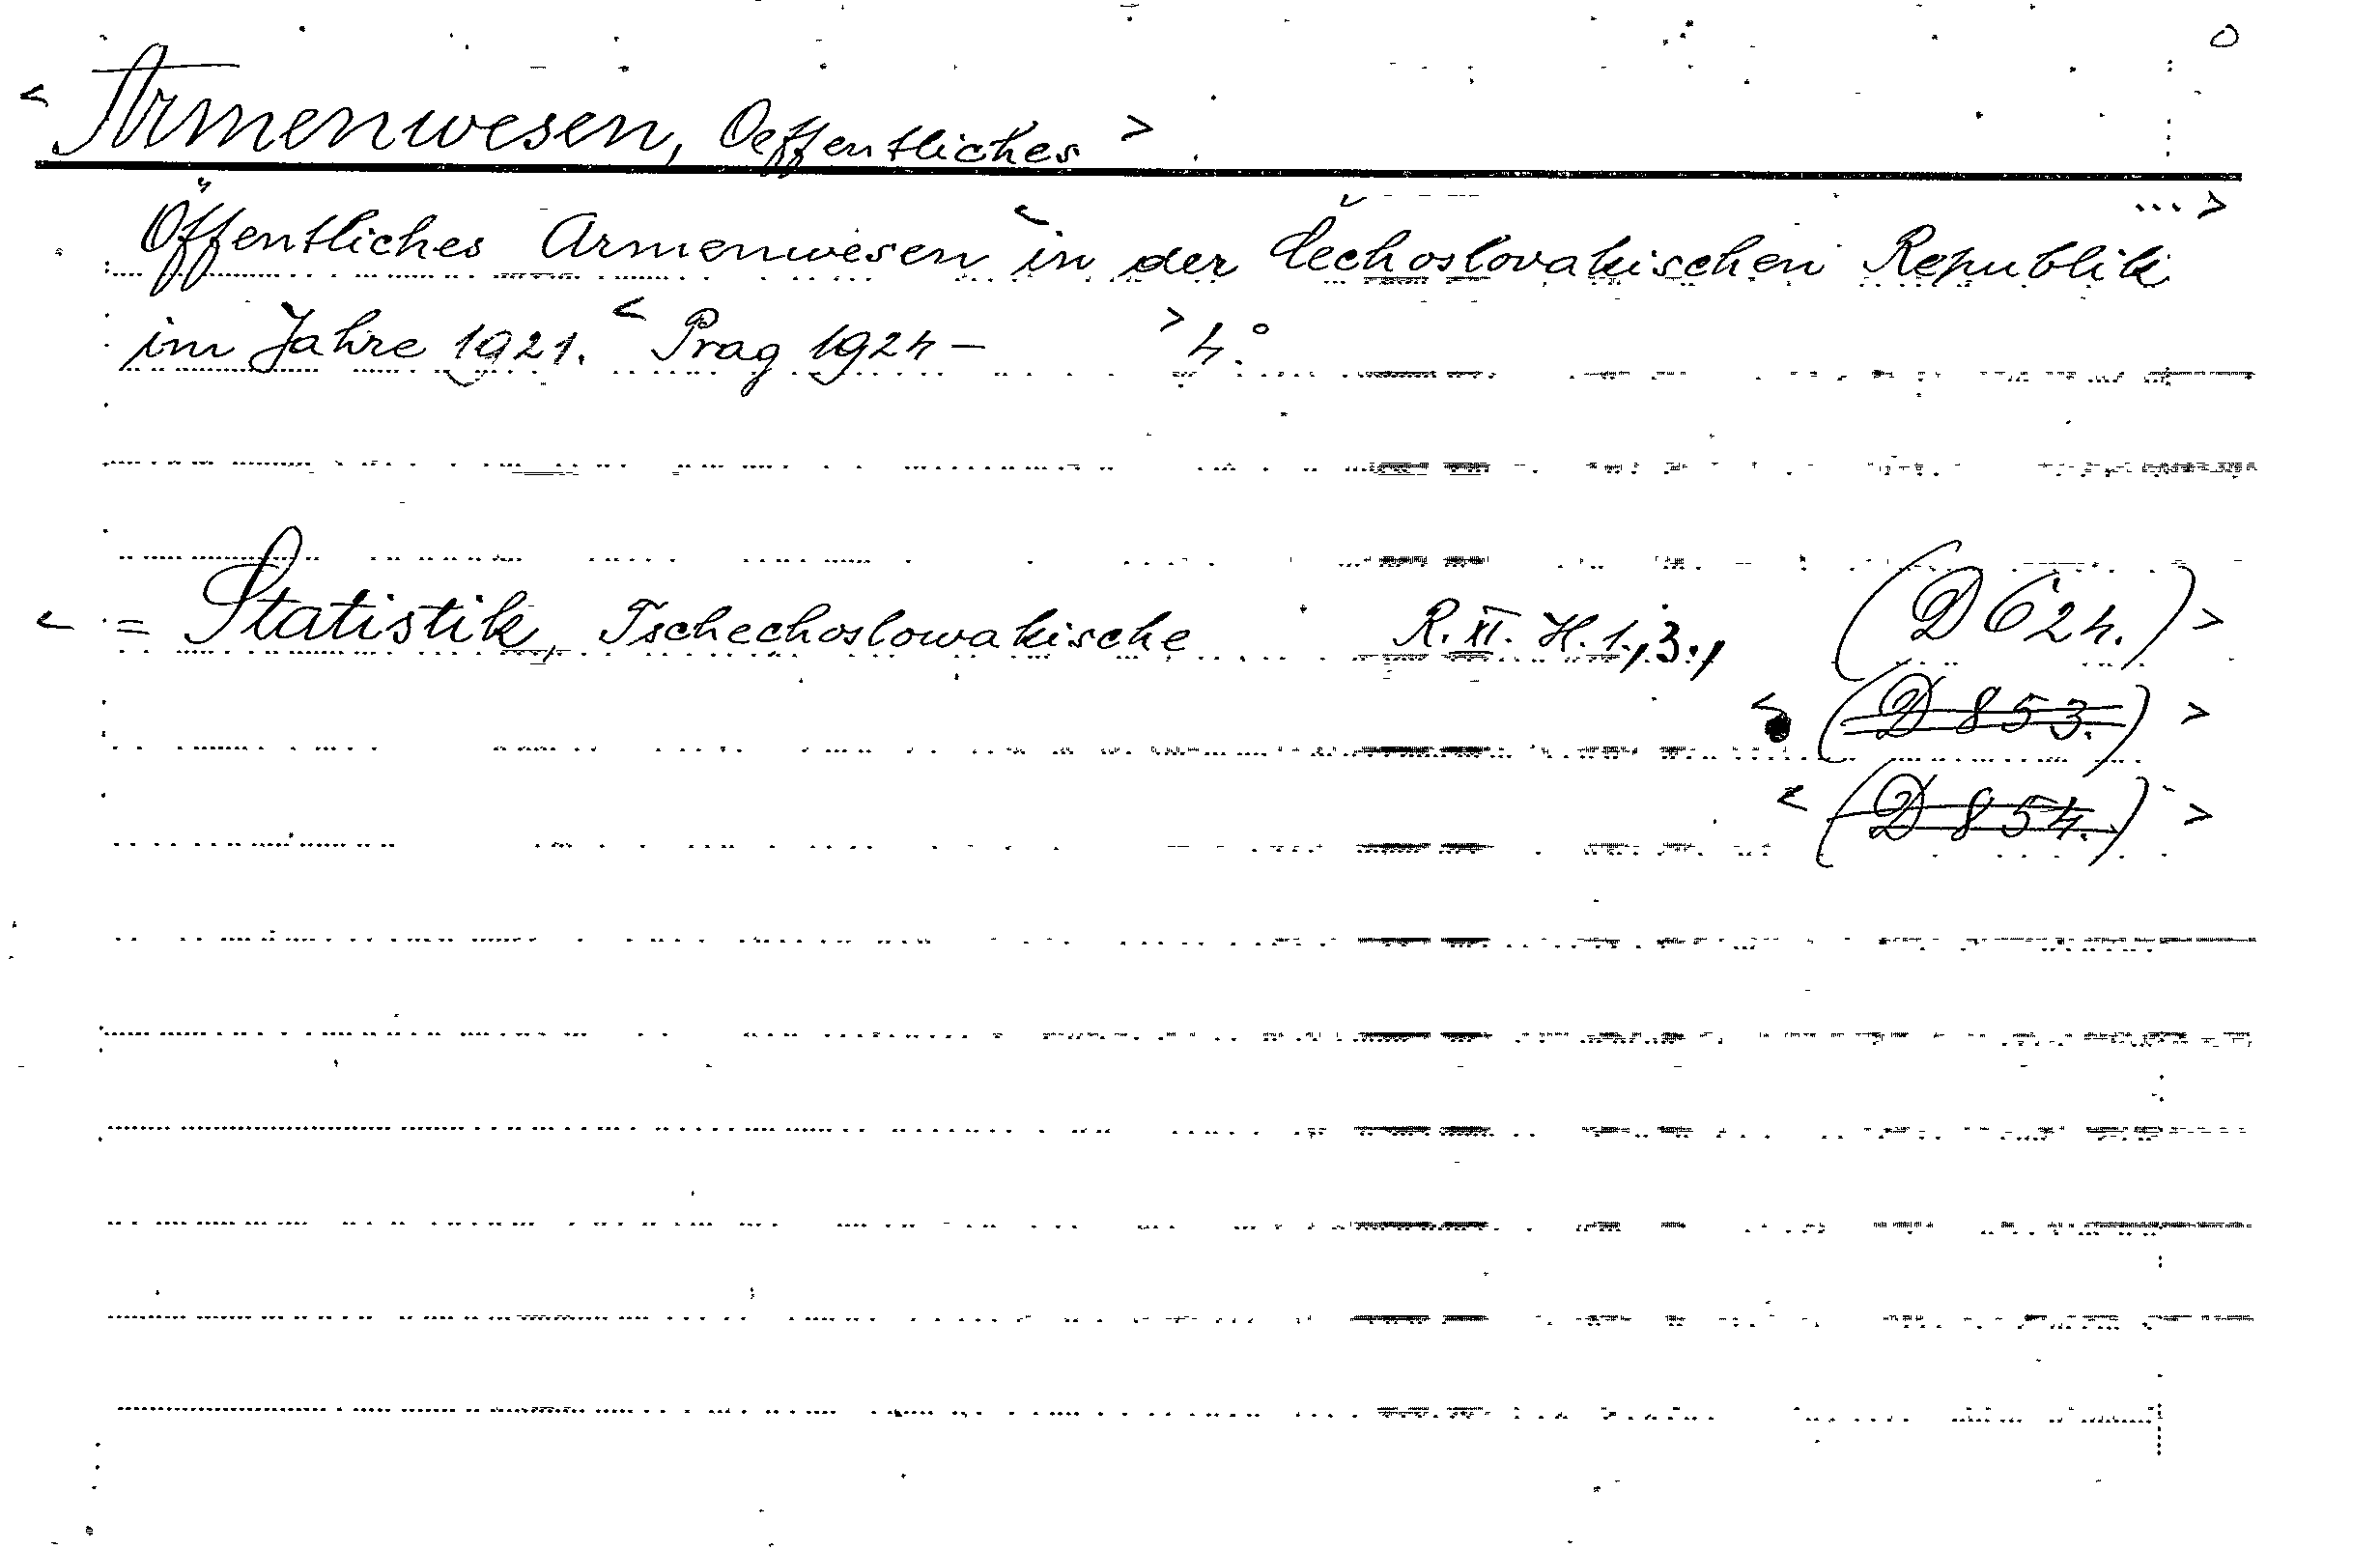 O
< Armenwesen, Oeffentliches >.
Öffentliches Armenwesen < in der Čechoslovakischen Republik ... >
im Jahre 1921. < Prag 1924 – > 4.°
< = Statistik, Tschechoslowakische R. XI. H. 1., 3., (D 624.) >
< (D 853.) >
< (D 854.) >